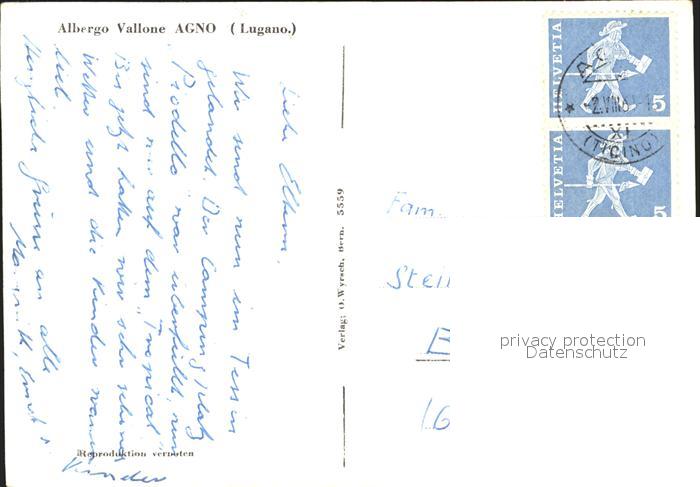 Albergo Vallone AGNO ( Lugano.)
Liebe Eltern,
Wir sind nun im Tessin
gelandet. Der Campingplatz
Piodella war überfüllt, nun
sind wir auf dem "Tropical"
Bis jetzt hatten wir sehr schönes
Wetter und die Kinder waren
lieb
Herzliche Grüsse an alle
Kinder
Reproduktion verboten
Verlag: O. Wyrsch, Bern. 5559
HELVETIA
5
-2.VIII.6
XI
(TICINO)
HELVETIA
5
Fam.
Stei
E
privacy protection
Datenschutz